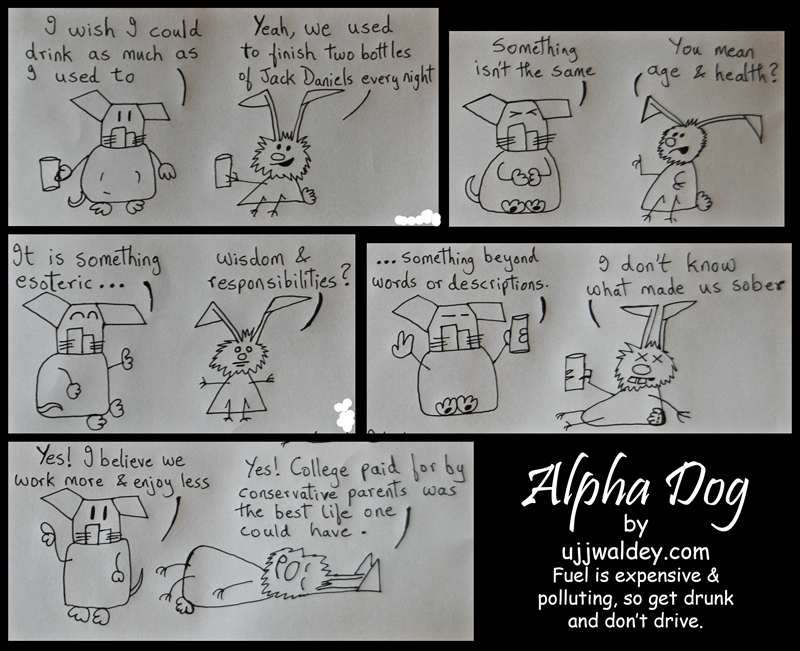 I wish I could
drink as much as
I used to
Yeah, we used
to finish two bottles
of Jack Daniels every night
Something
isn't the same
You mean
age & health?
It is something
esoteric...
wisdom &
responsibilities?
...something beyond
words or descriptions.
I don't know
what made us sober
Yes! I believe we
work more & enjoy less
Yes! College paid for by
conservative parents was
the best life one
could have.
Alpha Dog
by
ujjwaldey.com
Fuel is expensive &
polluting, so get drunk
and don't drive.